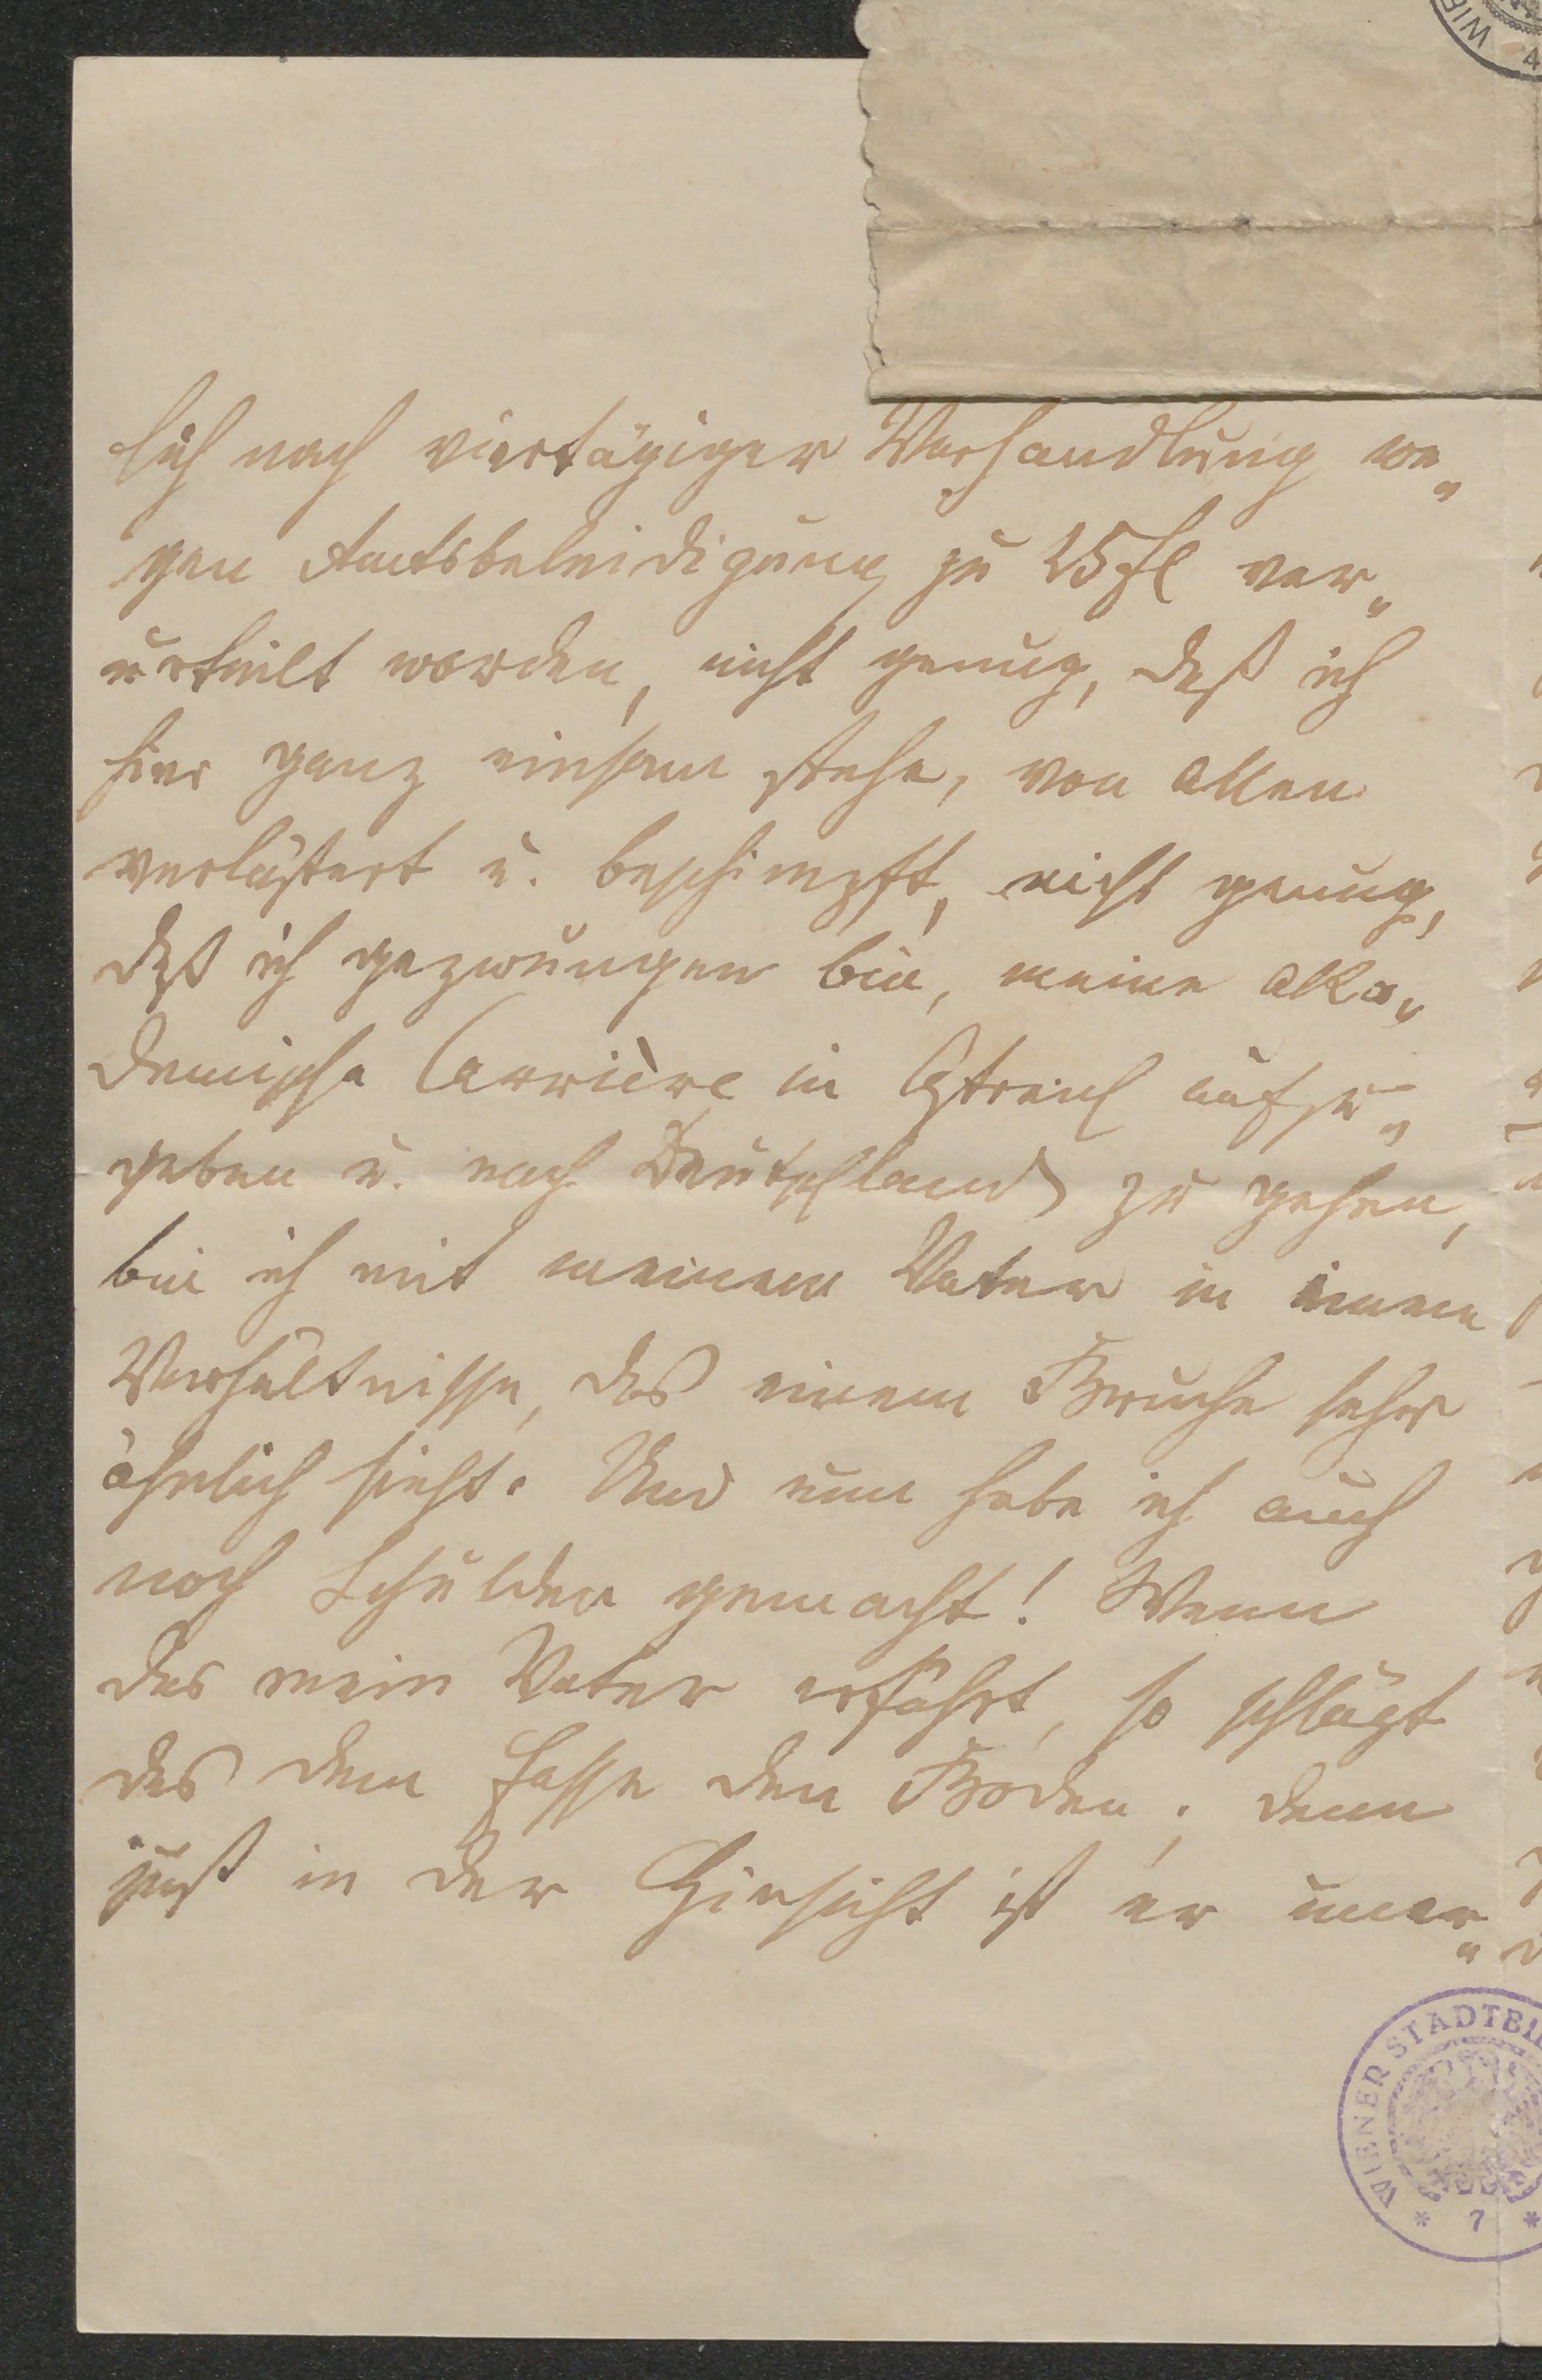 WIE
4
lich nach viertägiger Verhandlung we„
gen Amtsbeleidigung zu 25 fl ver„
urtheilt worden, nicht genug, daß ich
hier ganz einsam stehe, von allen
verlästert u. beschimpft, nicht genug,
daß ich gezwungen bin, meine aka„
demische Carrière in Östreich aufzu„
geben u. nach Deutschland zu gehen,
bin ich mit meinem Vater in einem
Verhältnisse, das einem Bruche sehr
ähnlich sieht. Und nun habe ich auch
noch Schulden gemacht! Wenn
das mein Vater erfährt, so schlägt
das dem Fasse den Boden; denn
just in der Hinsicht ist er uner„
WIENER STADTBI
* 7 *